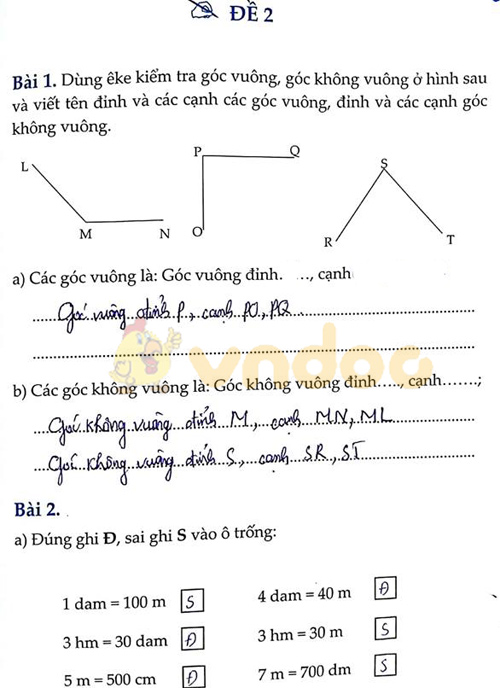 ĐỀ 2
Bài 1. Dùng êke kiểm tra góc vuông, góc không vuông ở hình sau
và viết tên đỉnh và các cạnh các góc vuông, đỉnh và các cạnh góc
không vuông.
L
M
N
P
Q
O
S
R
T
a) Các góc vuông là: Góc vuông đỉnh. .., cạnh
Góc vuông đỉnh P, cạnh PO, PQ
vndoc
b) Các góc không vuông là: Góc không vuông đỉnh...., cạnh......;
Góc không vuông đỉnh M, cạnh MN, ML
Góc không vuông đỉnh S, cạnh SR, ST
Bài 2.
a) Đúng ghi Đ, sai ghi S vào ô trống:
1 dam = 100 m S
4 dam = 40 m Đ
3 hm = 30 dam Đ
3 hm = 30 m S
5 m = 500 cm Đ
7 m = 700 dm S